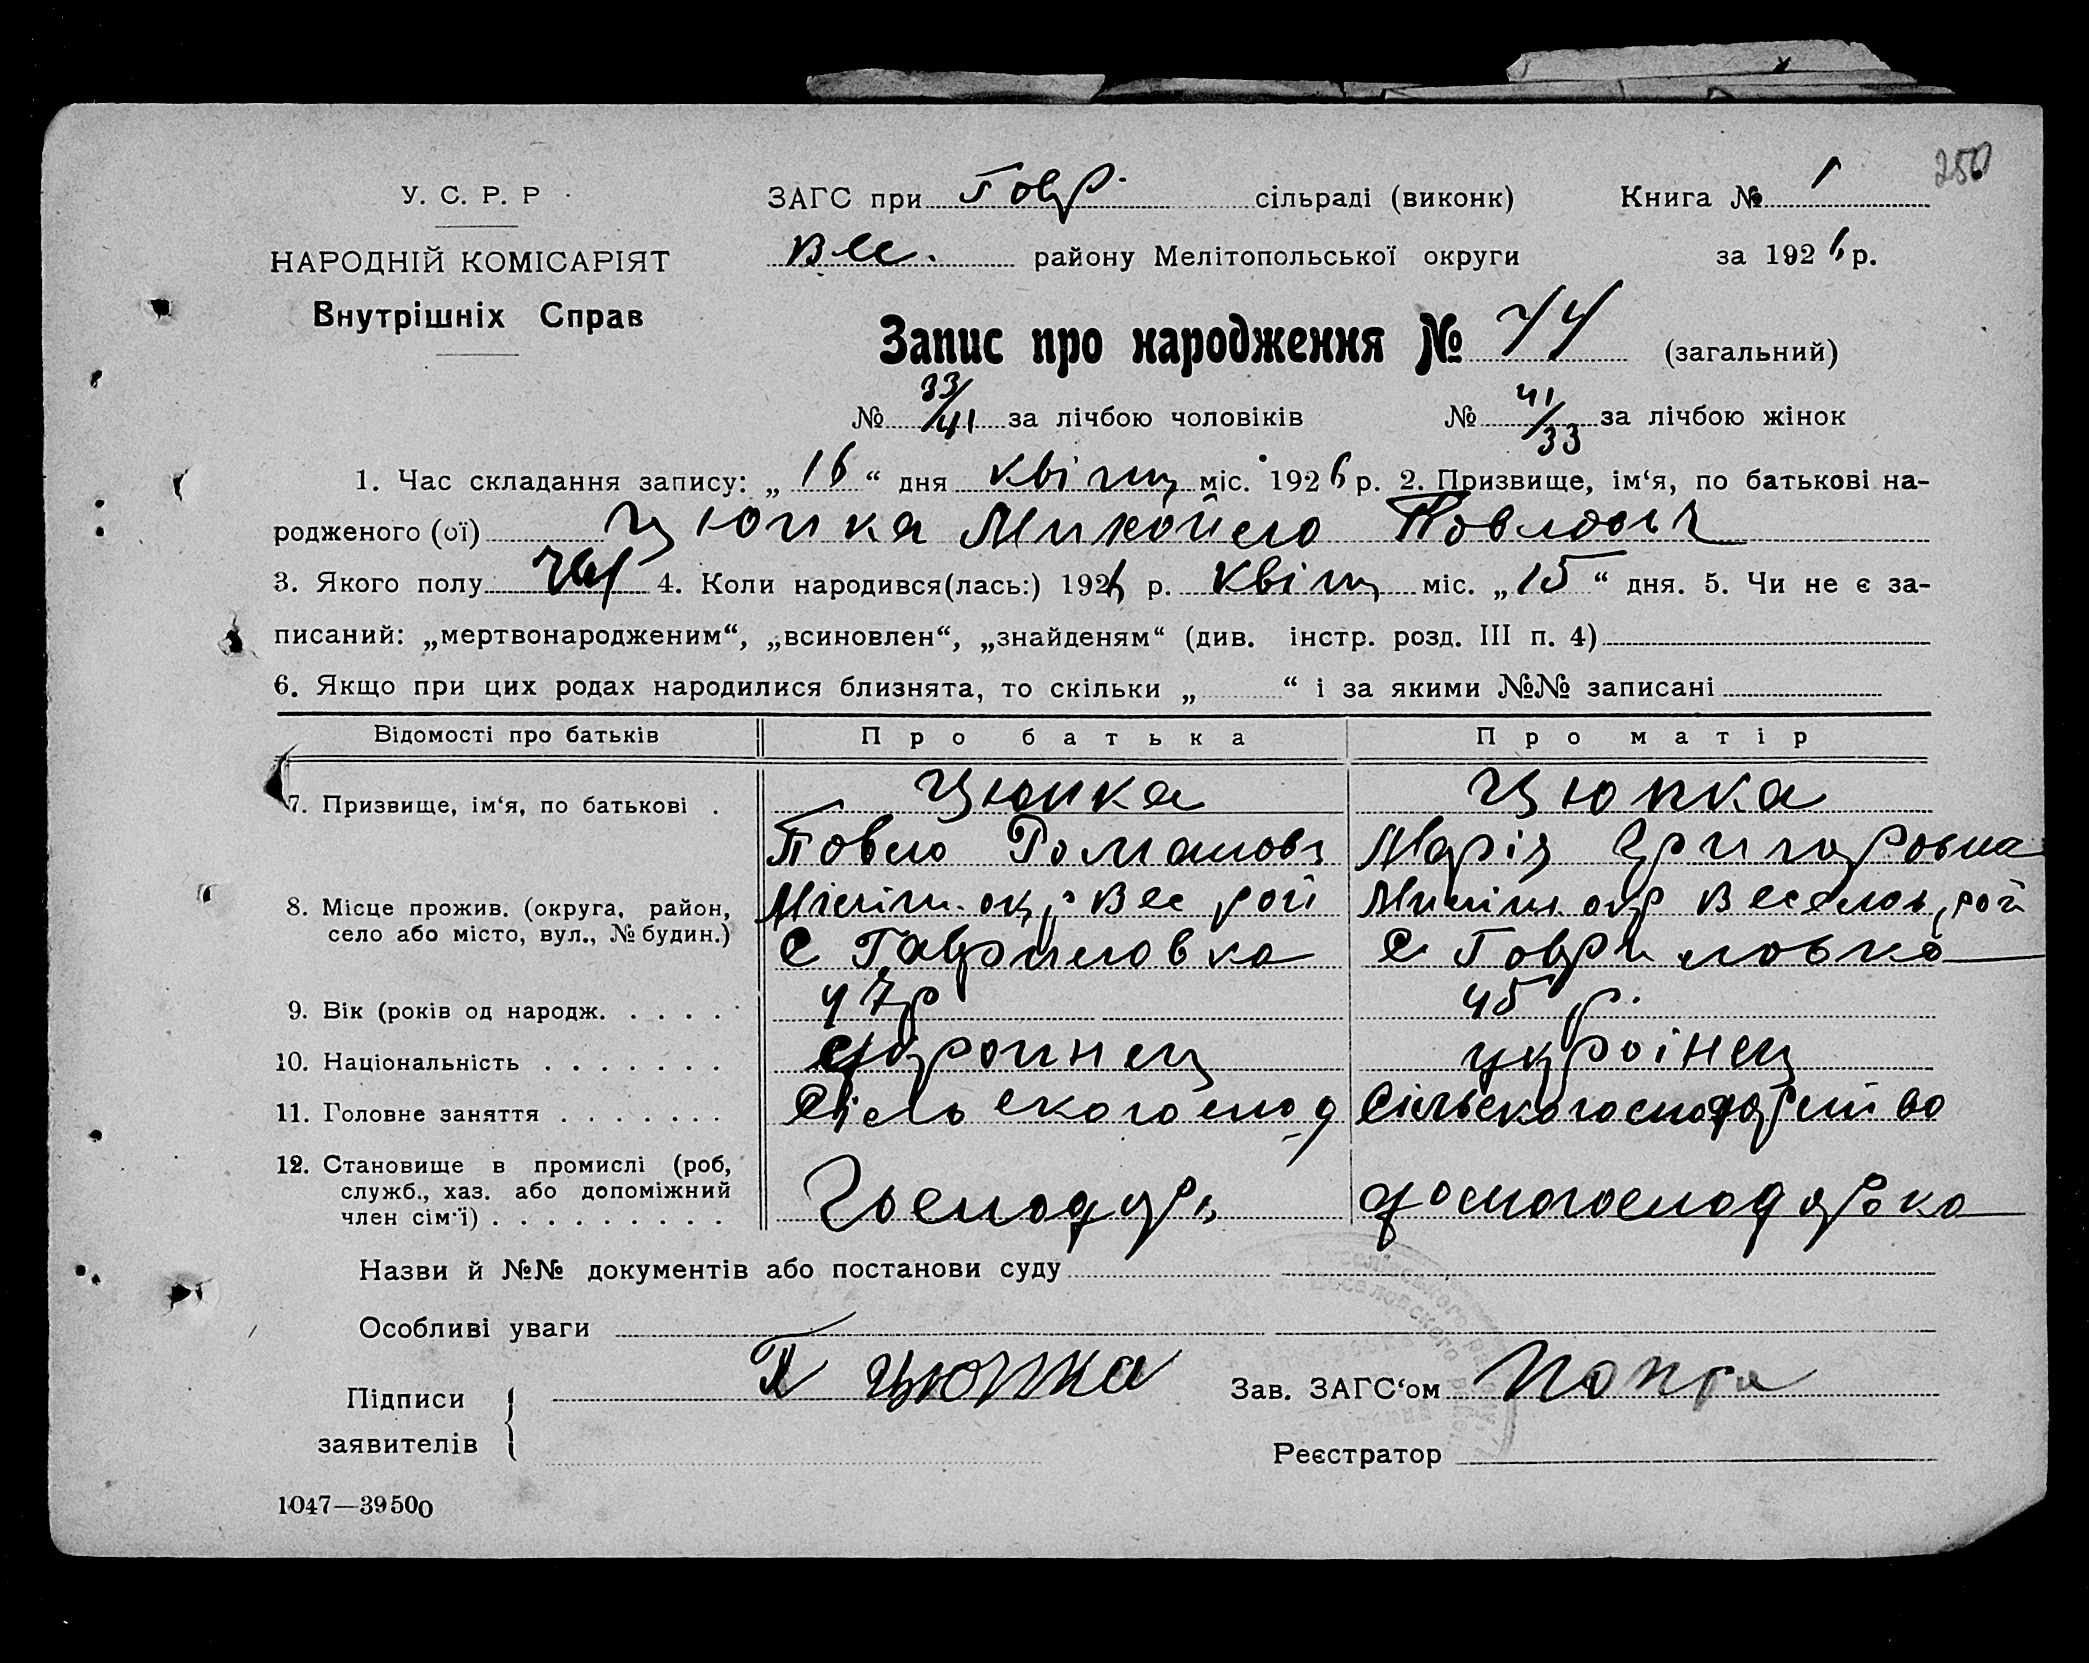 250
У. С. Р. Р
НАРОДНІЙ КОМІСАРІЯТ
Внутрішніх Справ
ЗАГС при Гавр. сільраді (виконк) Книга № 1
Вес. району Мелітопольської округи за 1926 р.
Запис про народження № 74 (загальний)
№ 33/41 за лічбою чоловіків № 41/33 за лічбою жінок
1. Час складання запису: „16“ дня квітц міс. 1926 р. 2. Призвище, ім‘я, по батькові на-
родженого (ої) Цюпка Михойло Повлович
3. Якого полу чол 4. Коли народився(лась:) 1926 р. квітц міс. „15“ дня. 5. Чи не є за-
писаний: „мертвонародженим“, „всиновлен“, „знайденям“ (див. інстр. розд. III п. 4)
6. Якщо при цих родах народилися близнята, то скільки „ “ і за якими №№ записані
Відомості про батьків Про батька Про матір
7. Призвище, ім‘я, по батькові . Цюпка Цюпка
Повло Романовг Марія Григоровна
8. Місце прожив. (округа, район, Меліт. окр Вес рой Меліт. окр Веселов, рой
село або місто, вул., № будин.) С Гаврилловка С Говриловка
9. Вік (років од народж. . . . . . 47р 45 р.
10. Національність . . . . . . . україинец україінец
11. Головне заняття . . . . . . . Сільскогоспод Сільскогосподарство
12. Становище в промислі (роб,
служб., хаз. або допоміжний
член сім‘ї) . . . . . . . . . Господарь домогосподарка
Назви й №№ документів або постанови суду
Особливі уваги
Підписи П Цюпка Зав. ЗАГС‘ом
заявителів Реєстратор
1047—39500